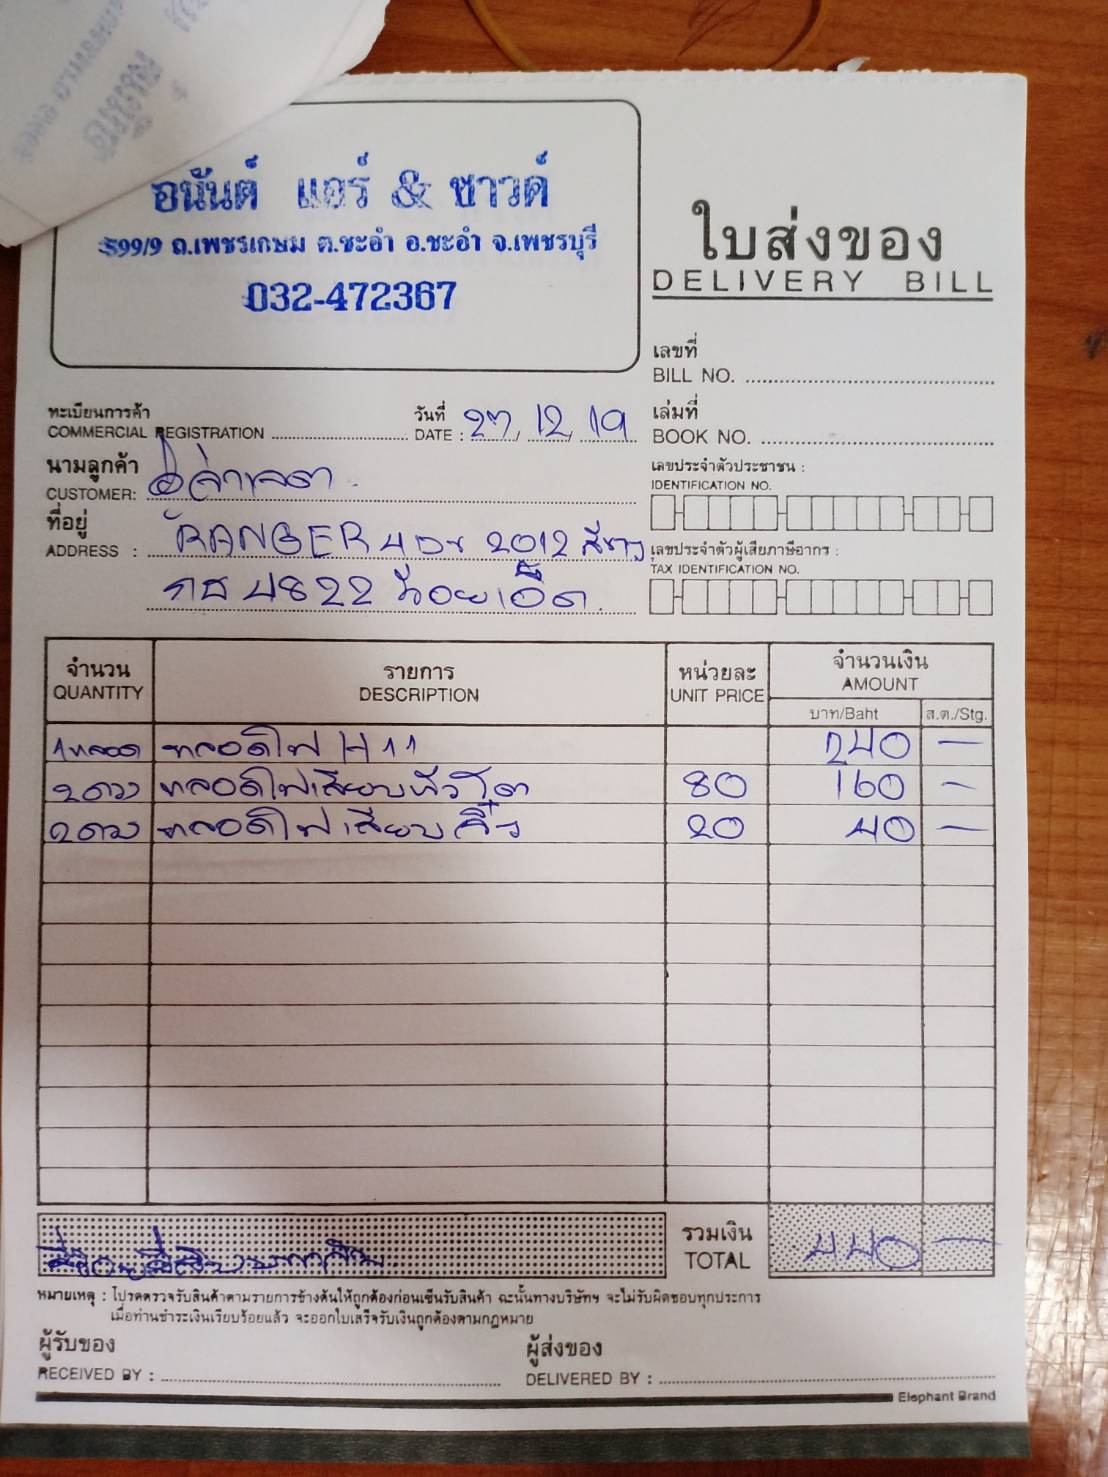 อนันต์ แอร์ & ซาวด์
599/9 ถ.เพชรเกษม ต.ชะอำ อ.ชะอำ จ.เพชรบุรี
032-472367
ใบส่งของ
DELIVERY BILL
เลขที่
BILL NO.
ทะเบียนการค้า
COMMERCIAL REGISTRATION
วันที่
DATE : 27, 12, 19
เล่มที่
BOOK NO.
นามลูกค้า
CUSTOMER:
เลขประจำตัวประชาชน :
IDENTIFICATION NO.
ที่อยู่
ADDRESS : RANGER 4 Dr 2012 สีขาว
เลขประจำตัวผู้เสียภาษีอากร :
TAX IDENTIFICATION NO.
4822 ร้อยเอ็ด
จำนวน รายการ หน่วยละ จำนวนเงิน
QUANTITY DESCRIPTION UNIT PRICE AMOUNT
บาท/Baht ส.ต./Stg.
1หลอด หลอดไฟ H11 240 —
2ดวง หลอดไฟเสียบหัวโต 80 160 —
2ดวง หลอดไฟเสียบจิ๋ว 20 40 —
รวมเงิน
TOTAL 440 —
สี่ร้อยสี่สิบบาท
หมายเหตุ : โปรดตรวจรับสินค้าตามรายการข้างต้นให้ถูกต้องก่อนเซ็นรับสินค้า ฉะนั้นทางบริษัทฯ จะไม่รับผิดชอบทุกประการ
เมื่อท่านชำระเงินเรียบร้อยแล้ว จะออกใบเสร็จรับเงินถูกต้องตามกฎหมาย
ผู้รับของ
RECEIVED BY :
ผู้ส่งของ
DELIVERED BY :
Elephant Brand